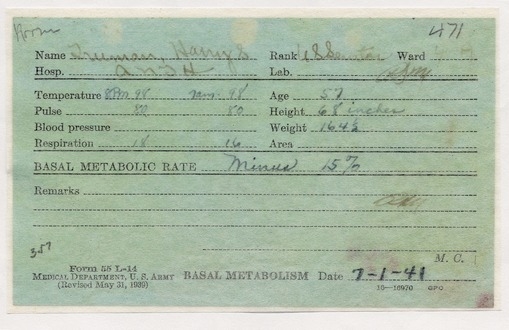 Room 471
Name Truman, Harry S Rank US Senator Ward
Hosp. A N & H Lab.
Temperature 8PM 98 7am. 98 Age 57
Pulse 80 80 Height 68 inches
Blood pressure Weight 164½
Respiration 18 16 Area
BASAL METABOLIC RATE Minus 15%
Remarks
M. C.
357
Form 55 L-14
MEDICAL DEPARTMENT, U. S. ARMY BASAL METABOLISM Date 7-1-41
(Revised May 31, 1939) 16—16970 GPO